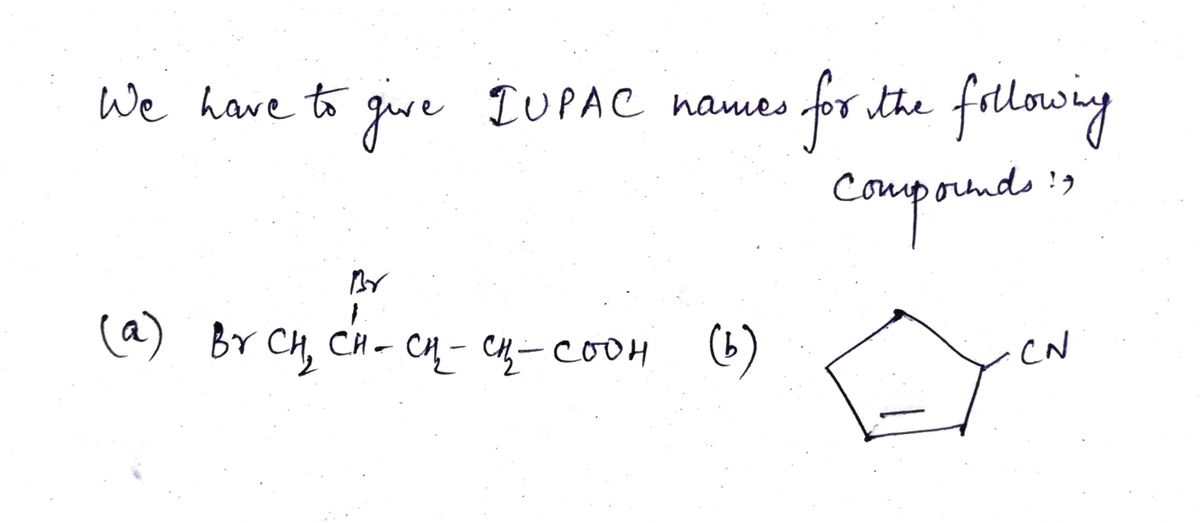 We have to give IUPAC names for the following
compounds :,
Br
(a) Br CH₂ CH - CH₂ - CH₂ - COOH (b) CN